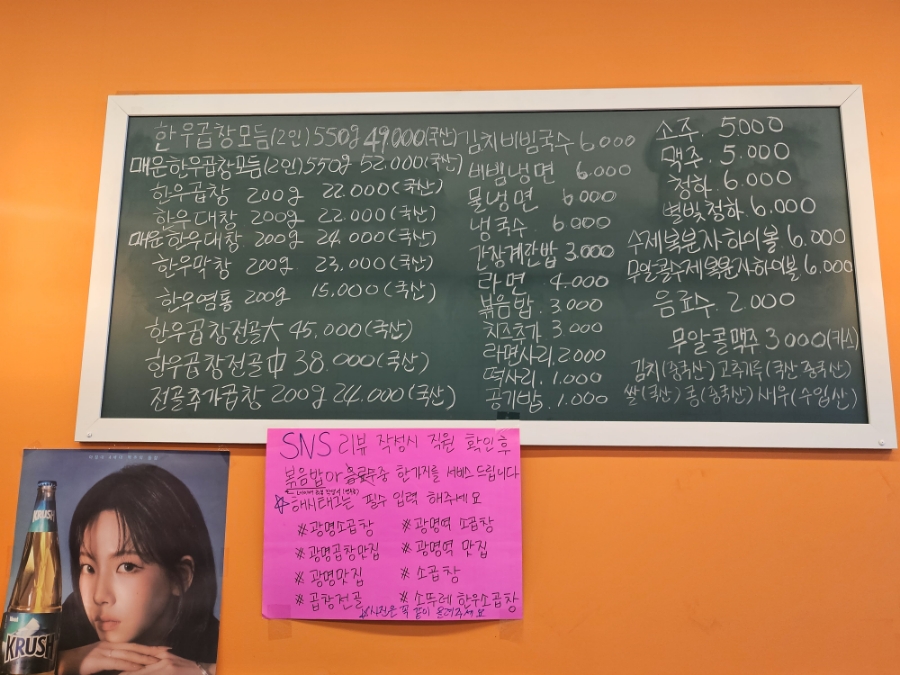 한우곱창모듬(2인)550g 49.000(국산)
매운한우곱창모듬(2인)550g 52.000(국산)
한우곱창 200g 22.000(국산)
한우대창 200g 22.000(국산)
매운한우대창 200g 24.000(국산)
한우막창 200g 23.000(국산)
한우염통 200g 15.000(국산)
한우곱창전골大 45.000(국산)
한우곱창전골中 38.000(국산)
전골추가곱창 200g 24.000(국산)
김치비빔국수 6.000
비빔냉면 6.000
물냉면 6.000
냉국수 6.000
간장계란밥 3.000
라면 4.000
볶음밥. 3.000
치즈추가 3.000
라면사리. 2.000
떡사리. 1.000
공기밥. 1.000
소주. 5.000
맥주. 5.000
청하. 6.000
별빛청하. 6.000
수제복분자하이볼 6.000
무알콜수제복분자하이볼 6.000
음료수. 2.000
무알콜맥주 3.000(카스)
김치(중국산) 고추가루(국산 중국산)
쌀(국산) 콩(중국산) 새우(수입산)
SNS 리뷰 작성시 직원 확인후
볶음밥or음료수중 한가지를 서비스드립니다
☆해시태그는 필수 입력 해주세요
#광명소곱창 #광명역 소곱창
#광명곱창맛집 #광명역 맛집
#광명맛집 #소곱창
#곱창전골 #소뚜레 한우소곱창
☆사진은 꼭 같이 올려주세요
KRUSH
KRUSH